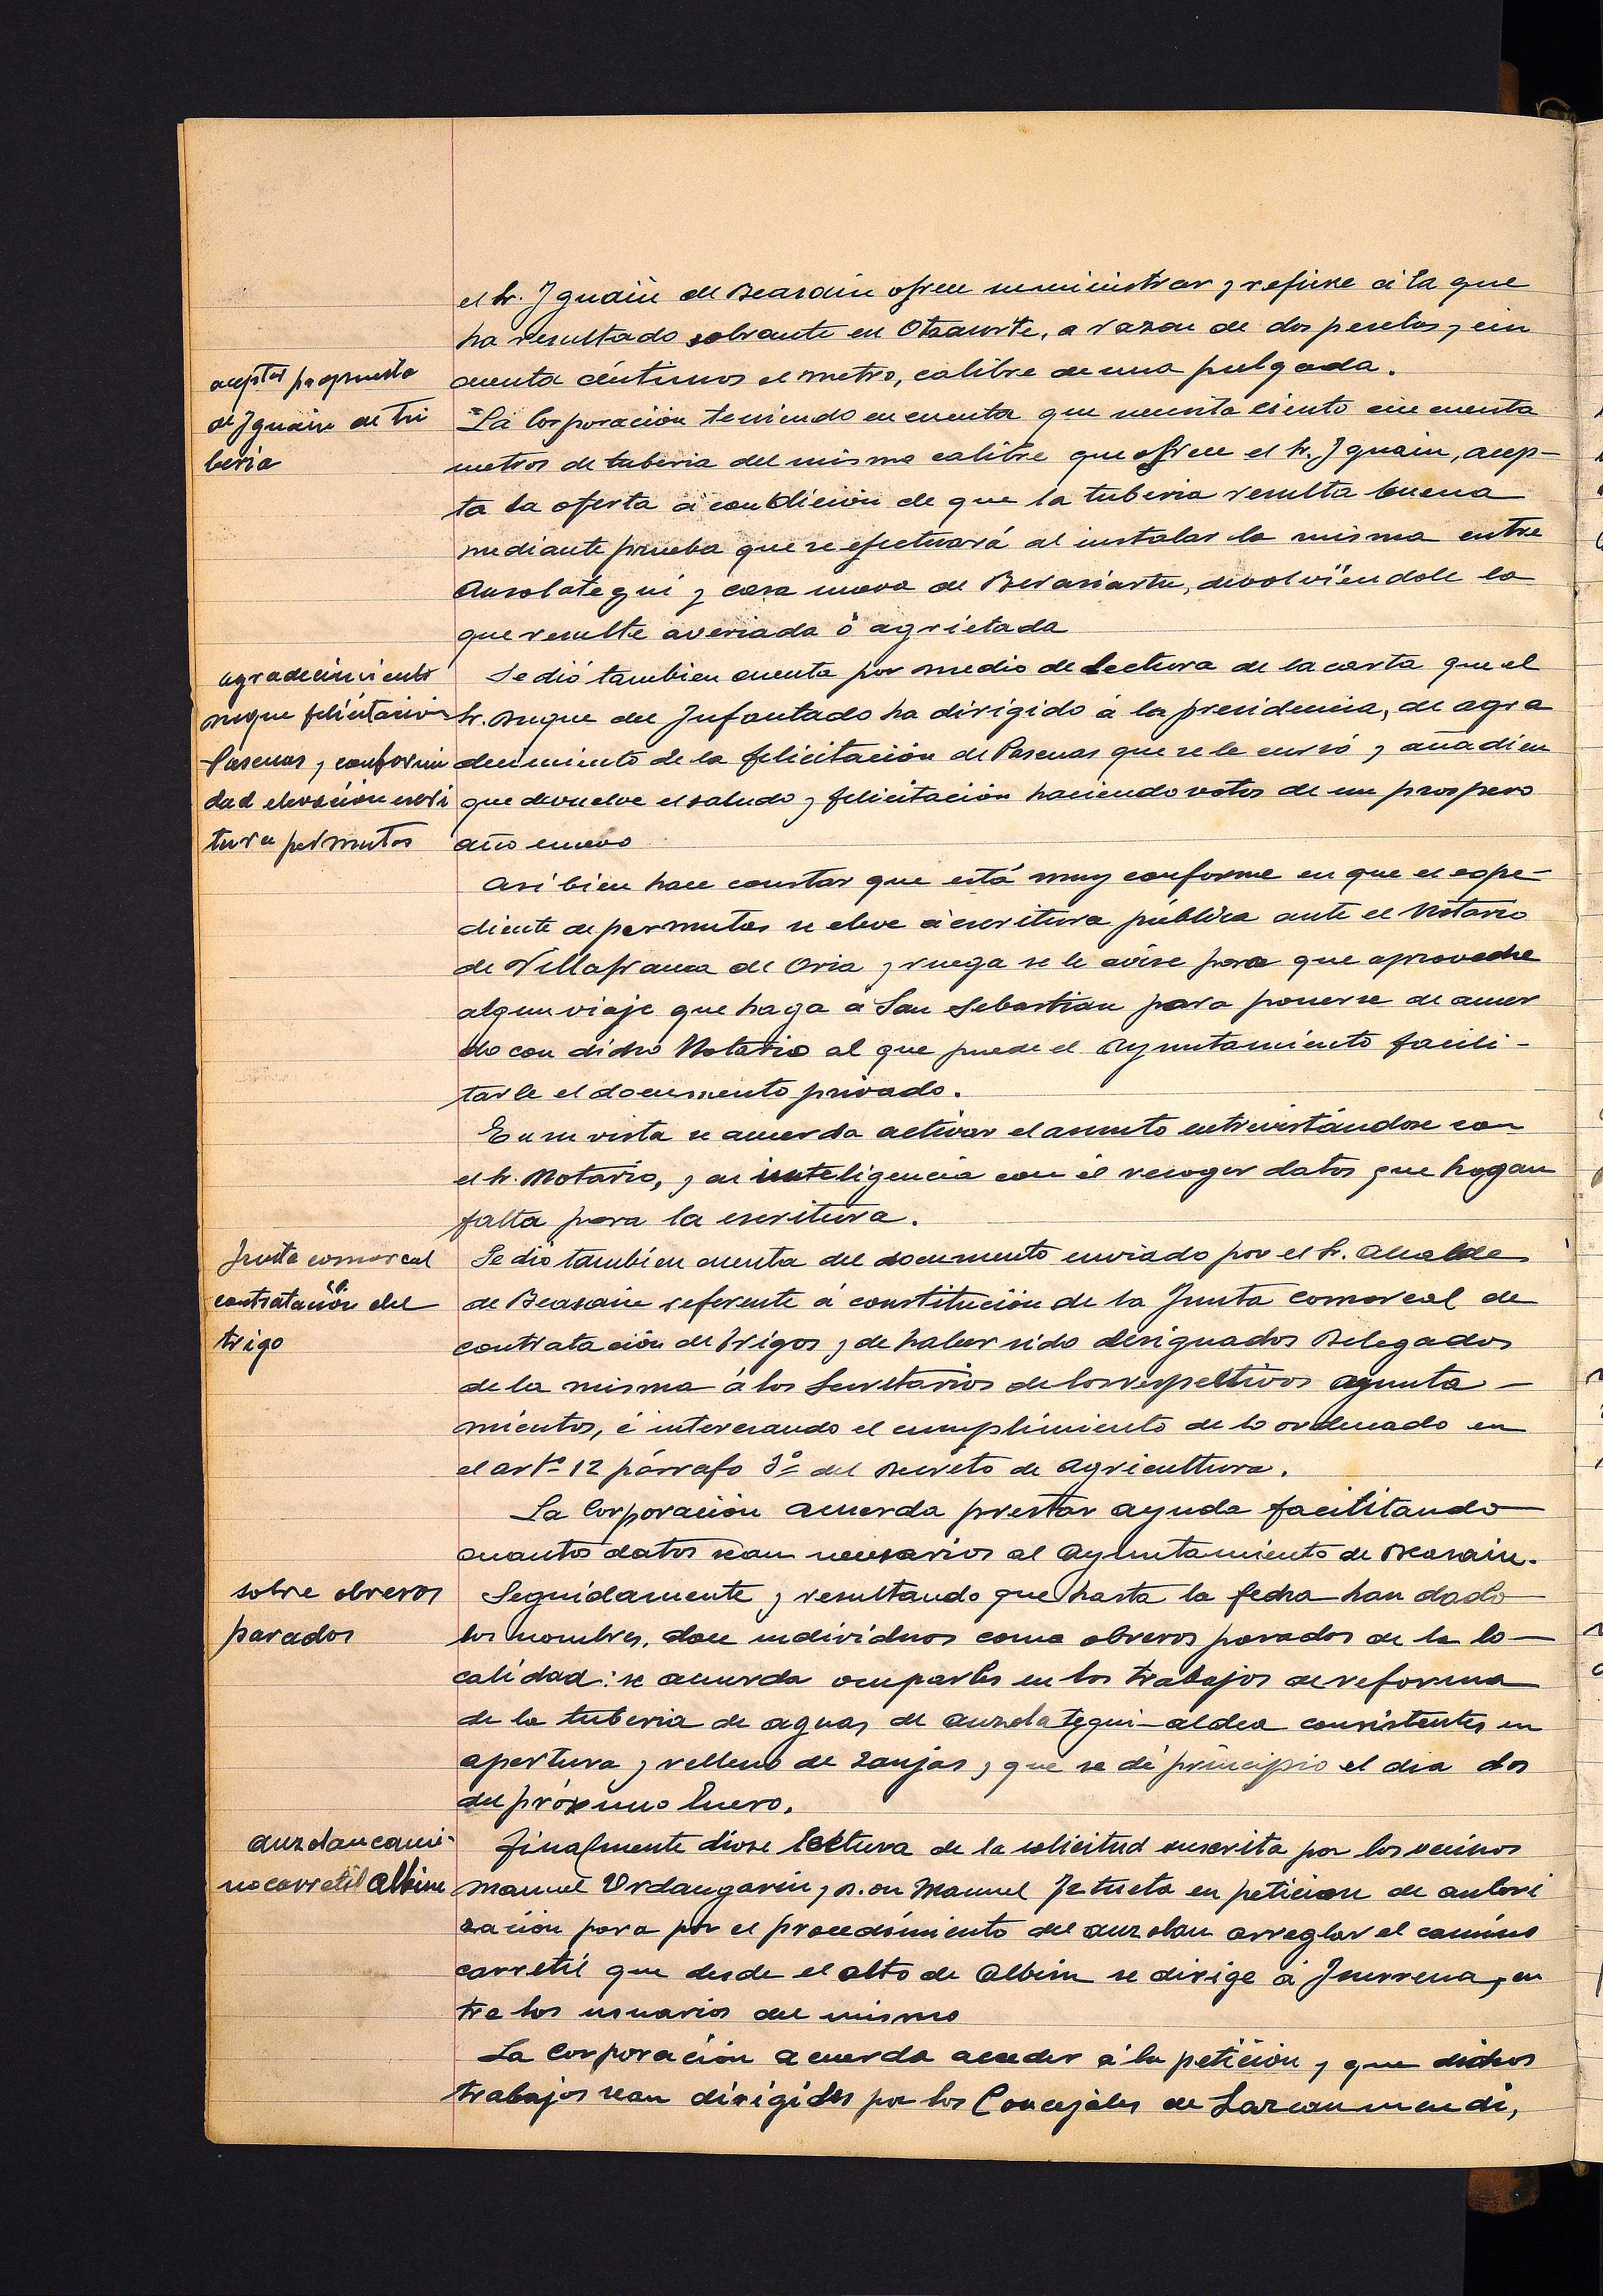 el Sr. Iguain de Beasain ofrece suministrar y refiere á la que
ha resultado sobrante en Otzaurte, a razon de dos pesetas y cin
aceptar propuesta
cuenta céntimos el metro, calibre de una pulgada.
de Iguain de tu
La Corporación teniendo en cuenta que necesita ciento cincuenta
beria
metros de tuberia del mismo calibre que ofrece el Sr. Iguain, acep-
ta la oferta á condición de que la tuberia resulta buena
mediante prueba que se efectuará al instalar la misma entre
Auzolategui y casa nueva de Berasiartu, devolviendole la
que resulte averiada ó agrietada
agradecimiento
Se dió tambien cuenta por medio de lectura de la carta que el
Duque felicitacion
Sr. Duque del Infantado ha dirigido á la presidencia, de agra
Pascuas y conformi
decimiento de la felicitación de Pascuas que se le envió y añadien
dad elevación escri
que devuelve el saludo y felicitación haciendo votos de un prospero
tura permutas
año nuevo
Asi bien hace constar que está muy conforme en que el espe-
diente de permutas se eleve á escritura pública ante el Notario
de Villafranca de Oria y ruega se le avise para que aproveche
algun viaje que haga á San Sebastian para ponerse de acuer
do con dicho Notario al que puede el Ayuntamiento facili-
tarle el documento privado.
En su vista se acuerda activar el asunto entrevistándose con
el Sr. Notario, y en inteligencia con él recoger datos que hagan
falta para la escritura.
Junta comarcal
Se dio también cuenta del documento enviado por el Sr. Alcalde
contratación del
de Beasain referente á constitución de la Junta comarcal de
trigo
contratación de trigos y de haber sido designados Delegados
de la misma á los Secretarios de los respectivos ayunta-
mientos, é interesando el cumplimiento de lo ordenado en
el artº 12 párrafo 3º del Decreto de Agricultura.
La Corporación acuerda prestar ayuda facilitando
cuantos datos sean necesarios al Ayuntamiento de Beasain.
sobre obreros
Seguidamente y resultando que hasta la fecha han dado
parados
los nombres, doce individuos como obreros parados de la lo-
calidad: se acuerda ocuparles en los trabajos de reforma
de la tuberia de aguas de Auzolategui-aldea consistentes en
apertura y relleno de zanjas y que se dé principio el dia dos
del próximo Enero.
auzolan cami-
Finalmente diose lectura de la solicitud suscrita por los vecinos
no carretil Albine
Manuel Urdangarin y D. on Manuel Iztueta en peticion de autori
zación para por el procedimiento del auzolan arreglar el camino
carretil que desde el alto de Albim se dirige á Inurrena, en
tre los usuarios del mismo
La Corporación acuerda acceder á la petición y que dichos
trabajos sean dirigidos por los Concejales de Lazcanomendi,